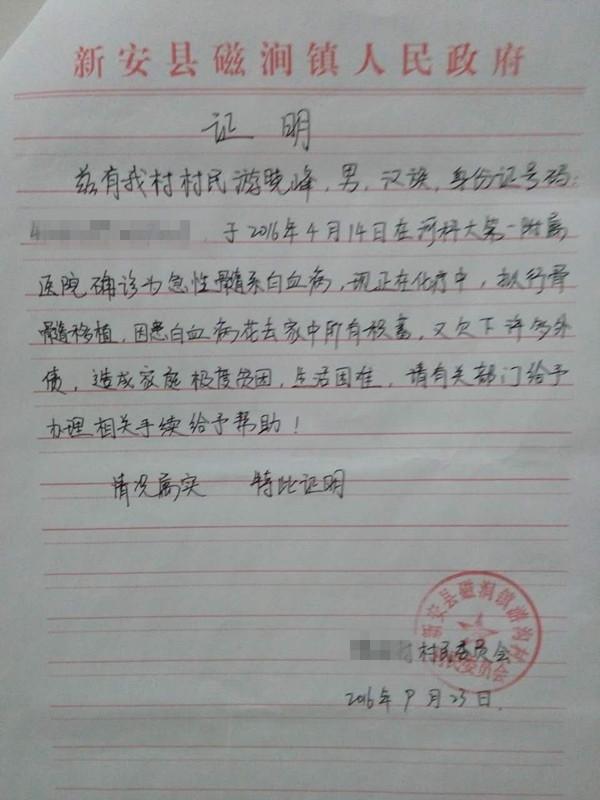 新安县磁涧镇人民政府
证 明
兹有我村村民游晓峰，男，汉族，身份证号码：
4 于2016年4月14日在河科大第一附属
医院确诊为急性髓系白血病，现正在化疗中，执行骨
髓移植，因患白血病花去家中所有积蓄，又欠下许多外
债，造成家庭极度贫困，生活困难，请有关部门给予
办理相关手续给予帮助！
情况属实 特此证明
新安县磁涧镇游沟村
村民委员会
村民委员会
2016年9月23日